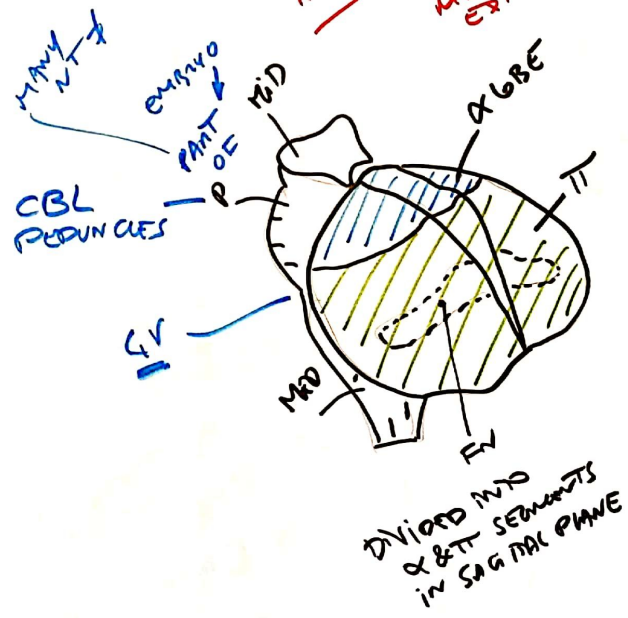 MANY
NT
EMBRYO
PART
OF
MiD
α LOBE
π
CBL
PEDUNCLES
P
4V
MED
FN
DiViDED INTO
α & π SEGMENTS
iN SAGITTAL PLANE